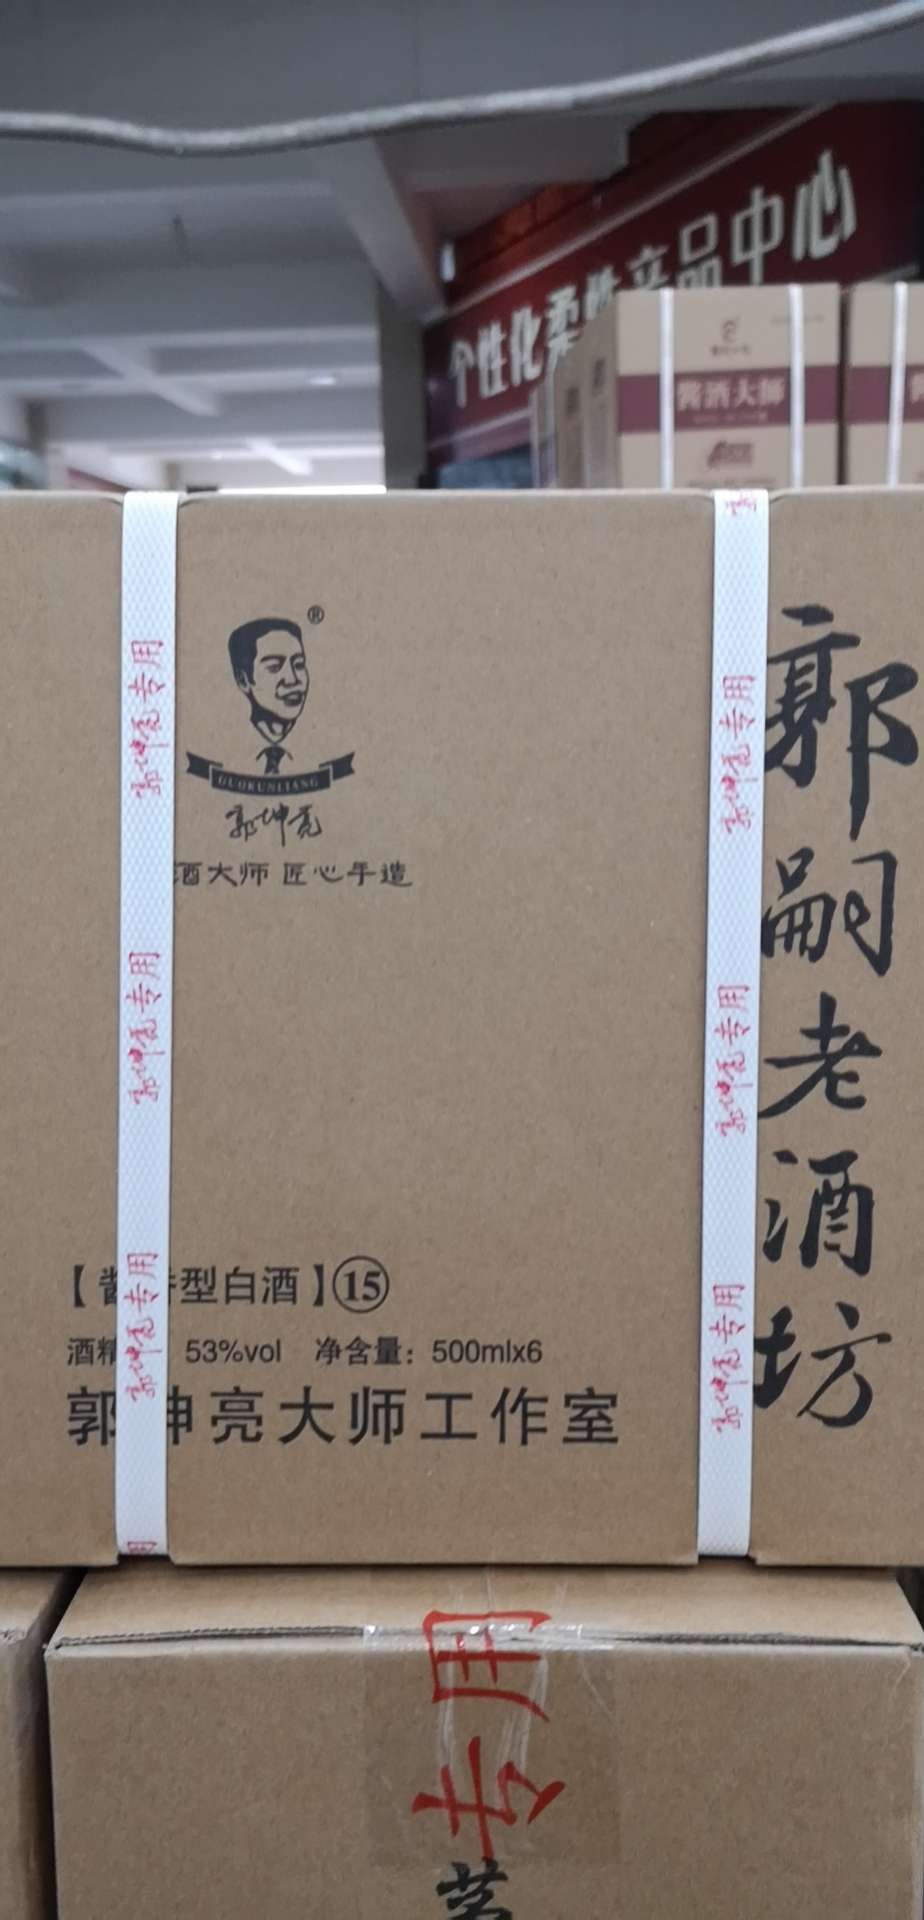 个性化柔性产品中心
酱酒大師
®
GUOKUNLIANG
郭坤亮
酒大师 匠心手造
郭嗣老酒坊
郭坤亮专用
郭坤亮专用
郭坤亮专用
郭坤亮专用
郭坤亮专用
郭坤亮专用
【酱香型白酒】⑮
酒精 53%vol 净含量：500mlx6
郭坤亮大师工作室
专用